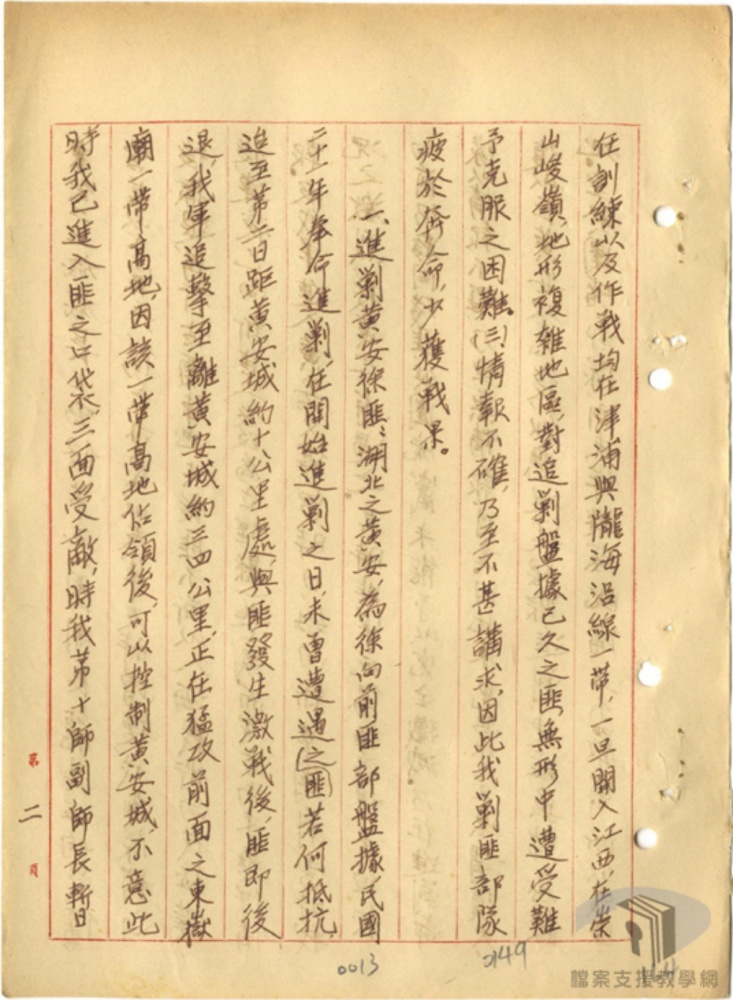 在訓練以及作戰均在津浦與隴海沿線一帶,一旦開入江西,在崇
山峻嶺,地形複雜地區,對追剿盤據已久之匪,無形中遭受難
予克服之困難。(三)情報不確,乃至不甚講求,因此我剿匪部隊
疲於奔命,少獲戰果。
一、進剿黃安徐匪:湖北之黃安,為徐向前匪部盤據,民國
二十一年奉命進剿,在開始進剿之日,未曾遭遇(之匪)若何抵抗,
迨至第二日距黃安城約十公里處,與匪發生激戰後,匪即後
退,我軍追擊至離黃安城約三四公里,正在猛攻前面之東嶽
廟一帶高地,因該一帶高地佔領後,可以控制黃安城,不意此
時我已進入匪之口袋,三面受敵,時我第十師副師長
第二頁
0013
0149
檔案支援教學網